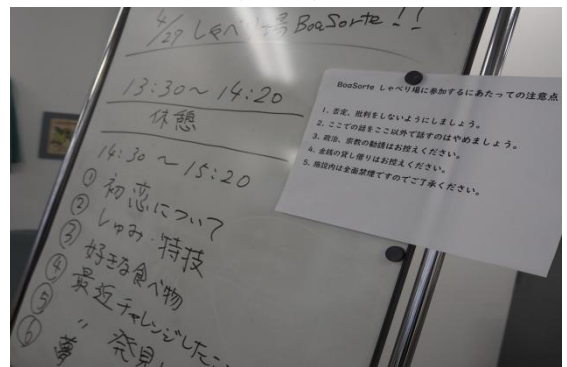 4/29 しゃべり場 BoaSorte!!
13:30～14:20
休憩
14:30～15:20
① 初恋について
② しゅみ・特技
③ 好きな食べ物
④ 最近チャレンジしたこ
⑤ 〃 発見
⑥ 夢
BoaSorte しゃべり場に参加するにあたっての注意点
1. 否定、批判をしないようにしましょう。
2. ここでの話をここ以外で話すのはやめましょう。
3. 政治、宗教の勧誘はお控えください。
4. 金銭の貸し借りはお控えください。
5. 施設内は全面禁煙ですのでご了承ください。